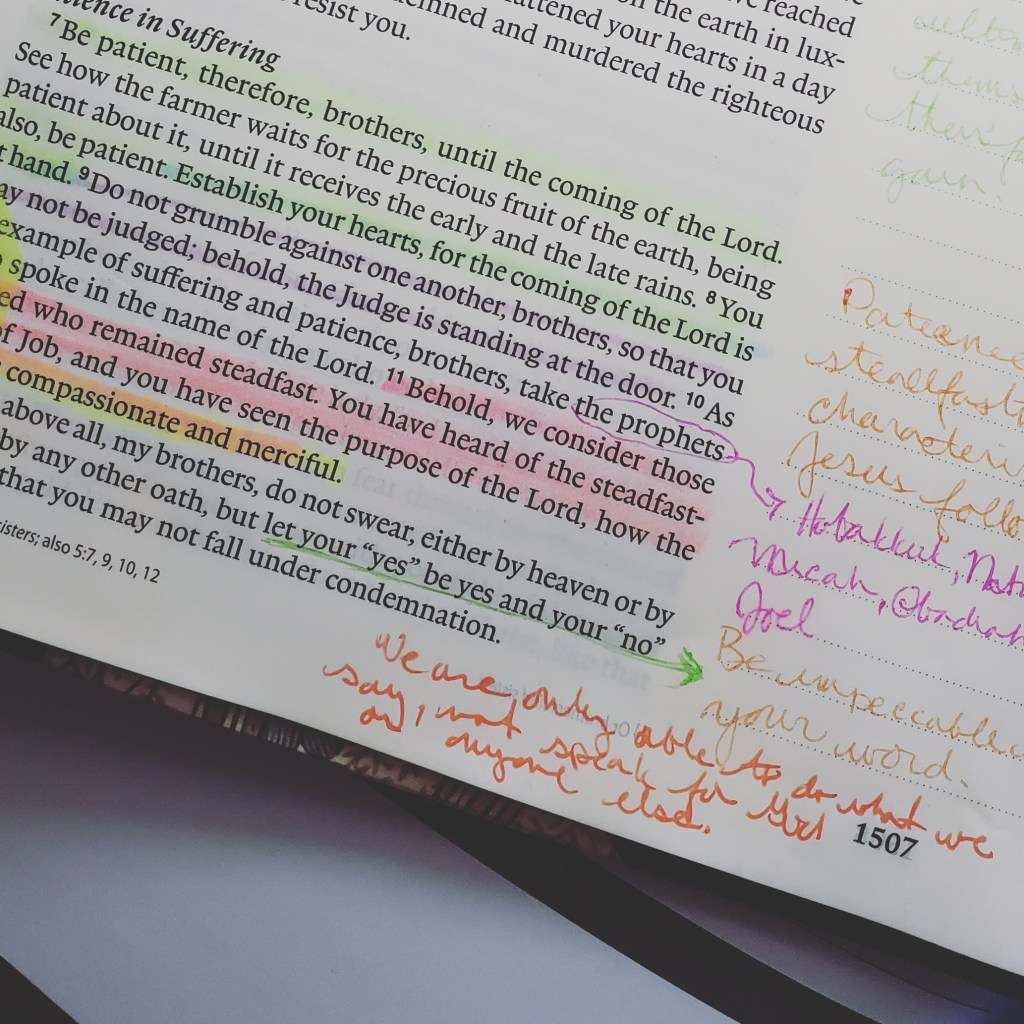 reached
the earth in lux-
attened your hearts in a day
demned and murdered the righteous
resist you.
ience in Suffering
7Be patient, therefore, brothers, until the coming of the Lord.
See how the farmer waits for the precious fruit of the earth, being
patient about it, until it receives the early and the late rains. 8You
also, be patient. Establish your hearts, for the coming of the Lord is
t hand. 9Do not grumble against one another, brothers, so that you
ay not be judged; behold, the Judge is standing at the door. 10As
example of suffering and patience, brothers, take the prophets
spoke in the name of the Lord. 11Behold, we consider those
ed who remained steadfast. You have heard of the steadfast-
of Job, and you have seen the purpose of the Lord, how the
compassionate and merciful.
above all, my brothers, do not swear, either by heaven or by
by any other oath, but let your “yes” be yes and your “no”
that you may not fall under condemnation.
isters; also 5:7, 9, 10, 12
gain.
Patience
steadfast
characteri
Jesus follo
Habakkuk, Nah
Micah, Obadiah
Joel
Be impeccable
your word.
We are only able to do what we
say, not speak for God
or anyone else.
1507